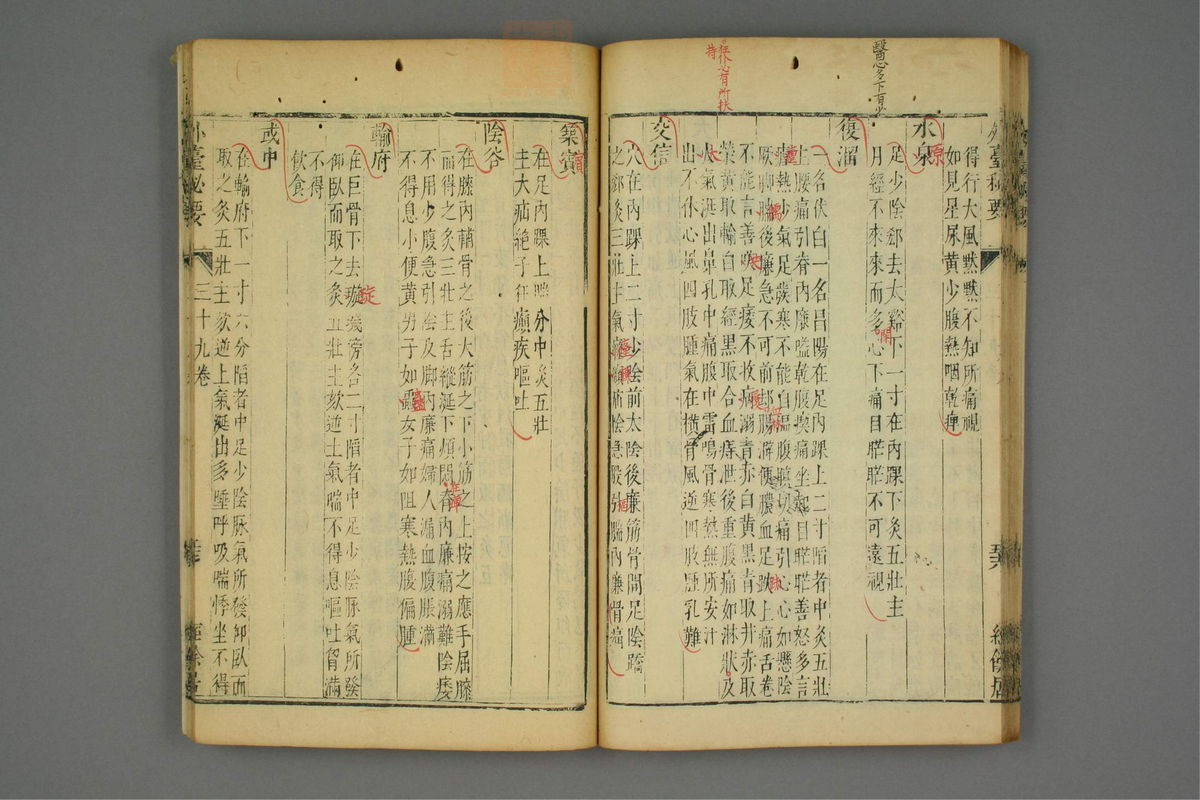 得行大風默默不知所痛視
如見星尿黃少腹熱咽乾痺
水泉
足少陰郄去太谿下一寸在內踝下灸五壯主
月經不來來而多心下痛目䀮䀮不可遠視
復溜
一名伏白一名昌陽在足內踝上二寸陷者中灸五壯
主腰痛引脊內廉嗌乾腹瘈痛坐起目䀮䀮善怒多言
瘧熱少氣足䠂寒不能自溫腹䐜切痛引心心如懸陰
厥腳腨後廉急不可前却腸澼便膿血足跗上痛舌卷
不能言善笑足痿不收痛溺青赤白黃黑青取井赤取
滎黃取輸白取經黑取合血痔泄後重腹痛如淋狀及
大氣涎出鼻孔中痛腹中雷鳴骨寒熱無所安汗
出不休心風四肢腫氣在橫骨風逆四肢腫乳難
交信
穴在內踝上二寸少陰前太陰後廉筋骨間足陰蹻
之郄灸三壯主氣陰急股引腨內廉骨痛
外臺秘要
築賓
在足內踝上腨分中灸五壯
主大疝絕子狂癲疾嘔吐
陰谷
在膝內輔骨之後大筋之下小筋之上按之應手屈膝
而得之灸三壯主舌縱涎下煩悶脊內廉痛溺難陰痿
不用少腹急引陰及腳內廉痛婦人漏血腹脹滿
不得息小便黃男子如蠱女子如阻寒熱腹偏腫
輸府
在巨骨下去璇璣傍各二寸陷者中足少陰脉氣所發
仰臥而取之灸五壯主欬逆上氣喘不得息嘔吐胷滿
不得
飲食
彧中
在輸府下一寸六分陷者中足少陰脉氣所發仰臥而
取之灸五壯主欬逆上氣涎出多唾呼吸喘悸坐不得
外臺秘要 三十九卷